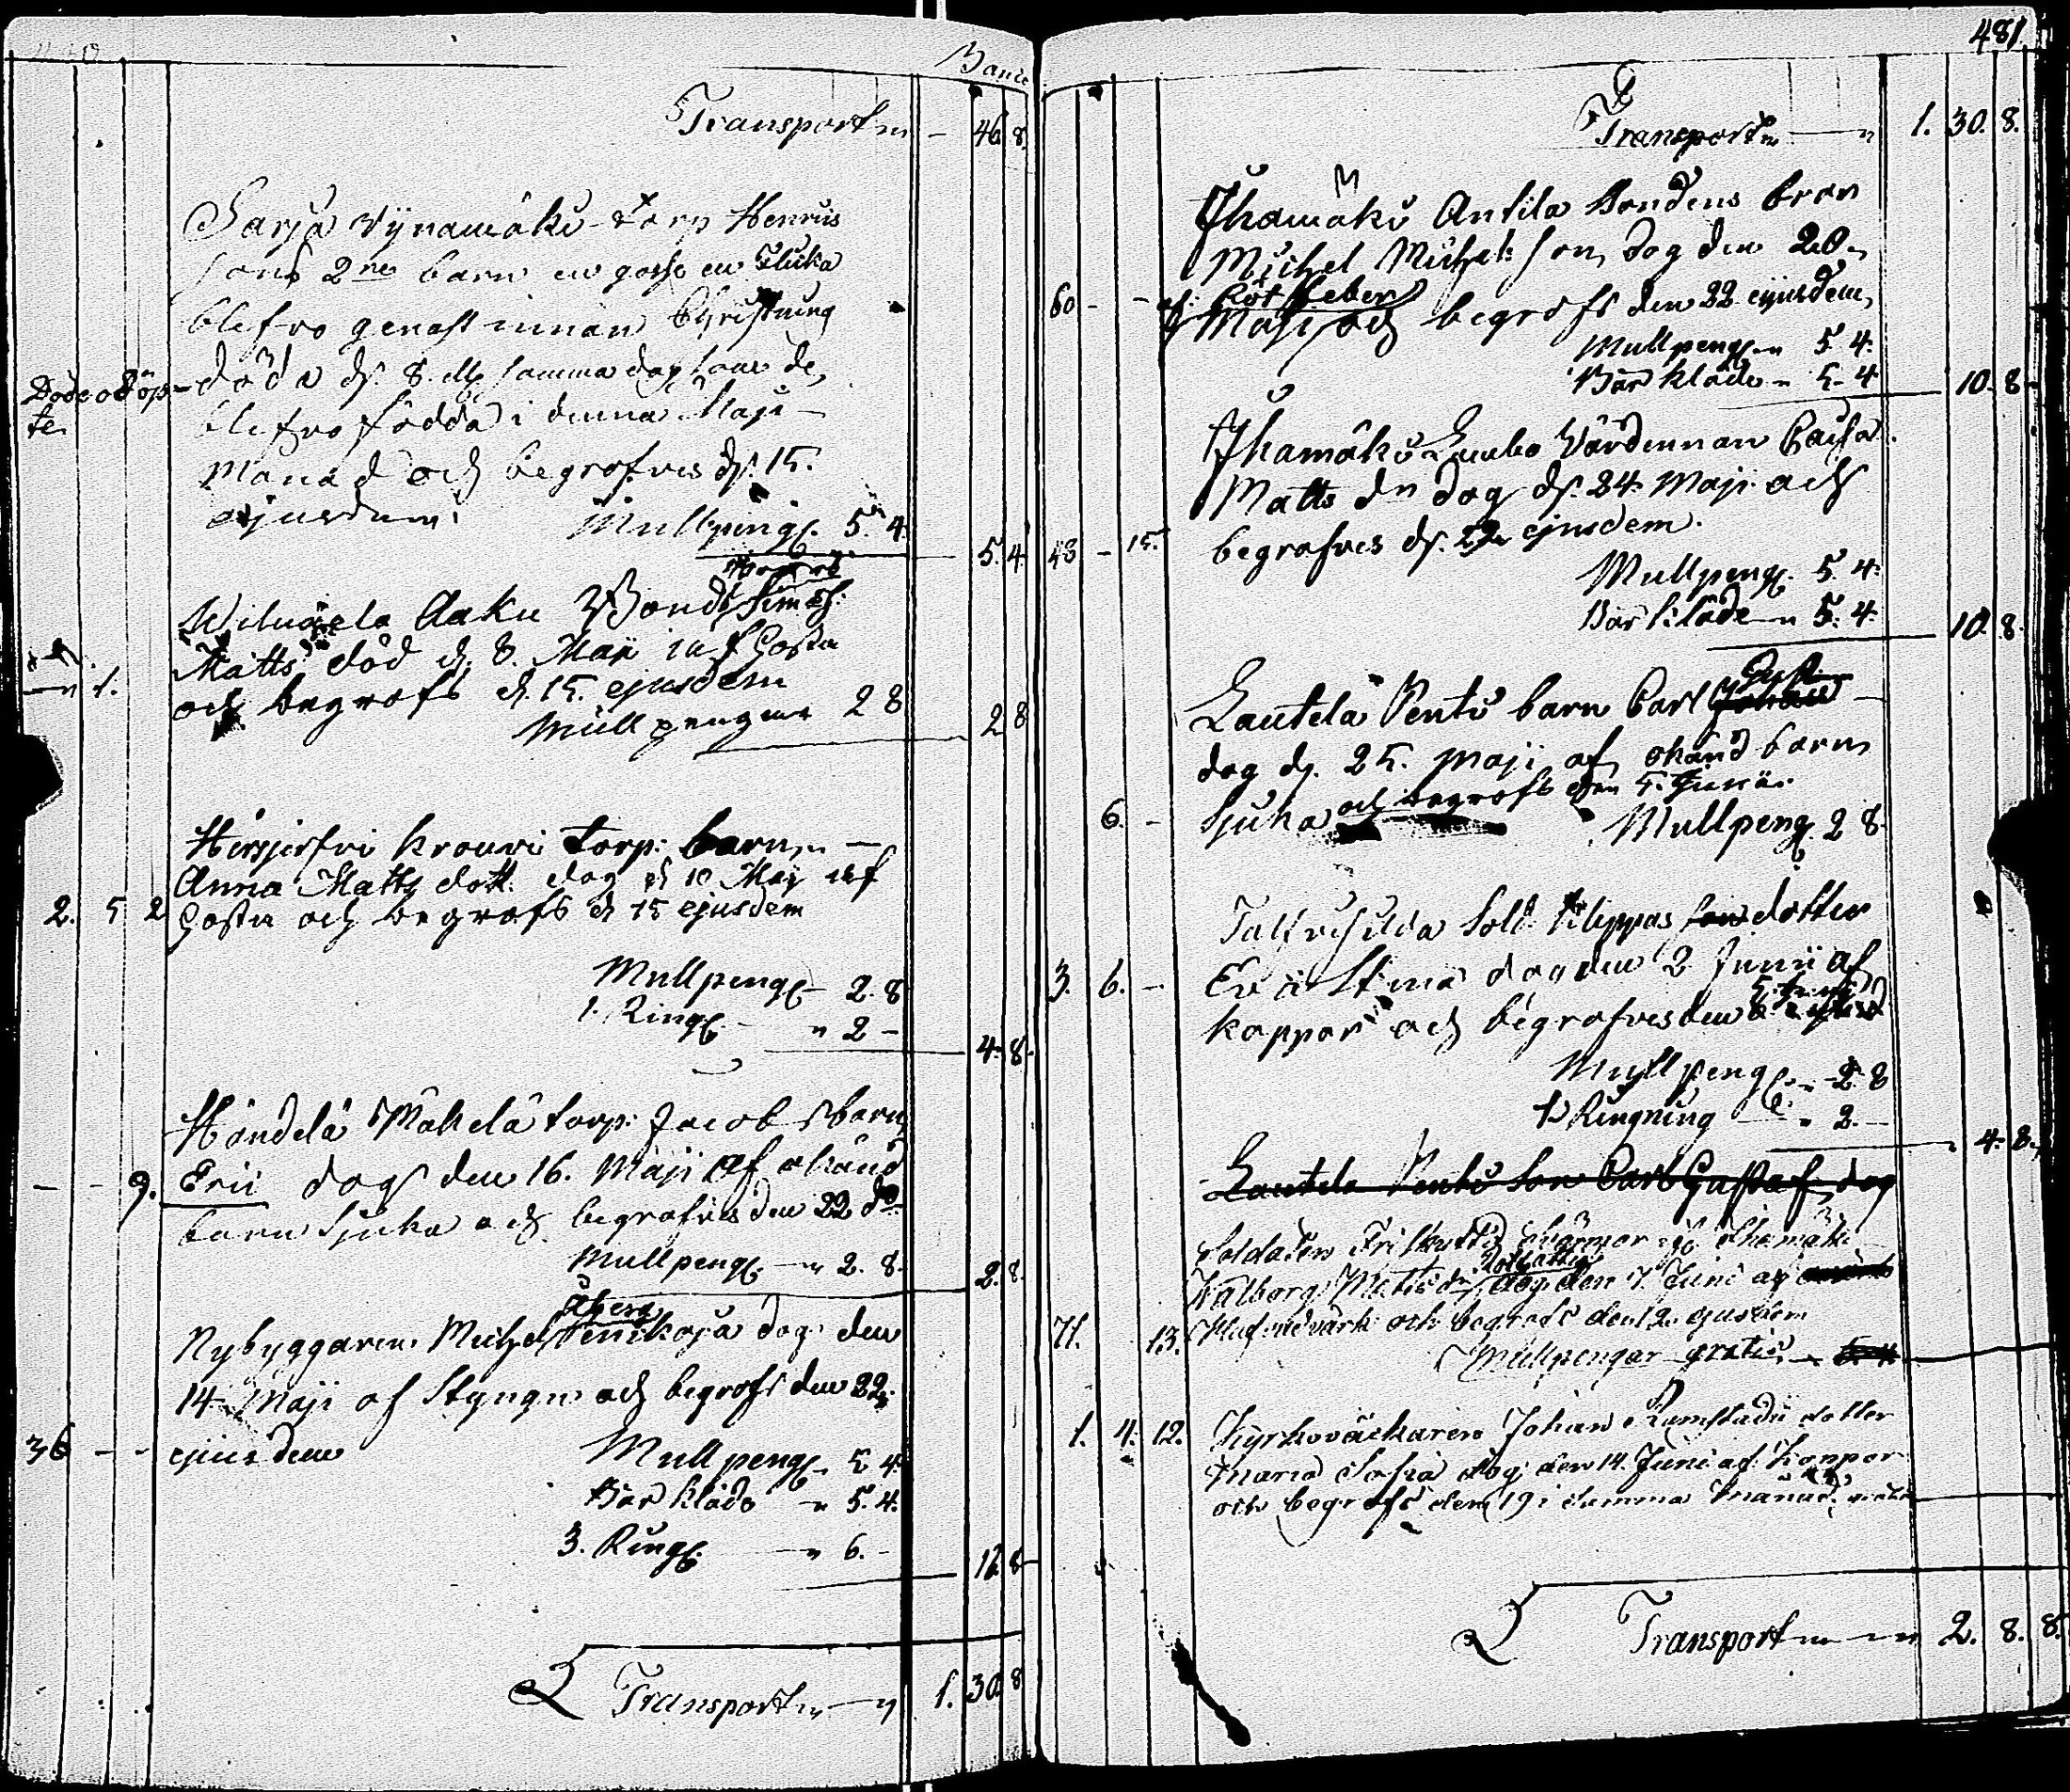 Banco
Transport " - 46 8.
Sarja Wynamäki Torp Henriks
sons 2ne barn en gosse en Flicka
blefvo genast innan Christning
Döde odöp- döda d. 8. samma dag som de
te. blefvo födda i denna Maji
Månad och begrofves d. 15.
ejusdem. Mullpeng. 5. 4.
5. 4.
Aaku Bond Sims:
Matts död d. 8. Maji af Hosta
1. och begrofs d. 15. ejusdem
Mullpengar 2 8
2 8
Krouvi torp: barn
Anna Matts dott. dog d 10 Maji af
2. 5 2 Hosta och begrofs d 15 ejusdem
Mullpeng. 2. 8
1. Ring. " 2 -
4. 8.
Händelä Mäkelä torp: Jacobs barn
- - 9. Eric dog den 16. Maji af okänd
barn Sjuka och begrofves den 22 do
Mullpeng. " 2. 8.
2. 8.
Åberg
Nybyggaren Michel Penikoja dog den
14 Maji af Styng och begrofs den 22.
36 - - ejusdem
Mullpeng. 5 4.
Bår kläde " 5. 4.
3. Ring. " 6. -
16 8
Transport " 1. 30 8
481.
Transport " 1. 30. 8.
Ihamäki Antila Bondens bror
Michel Michelsson dog den 20
60 - - af: Röt feber
Maji och begrofs den 22 ejusdem,
Mullpeng. " 5 4.
Bår kläde " 5. 4
10. 8
Ihamäki Laurbo Värdinnan Caisa
Matts dr dog d. 24 Maji och
48 - 15. begrofves d. 29 ejusdem.
Mullpeng. 5. 4.
Bår kläde " 5. 4.
10. 8.
Gust.
Lautela Pentti barn Carl Johan
dog d. 25. Maji af okänd barn
6. - Sjuka och begrofs den 5. Junii.
Mullpeng. 2 8.
Sold. Filippus son dotter
3. 6. - Eva Stina dog den 2 Junii af
koppor och begrofves den 5. Junii
Mullpeng. " 2. 8
1 Ringning " 2. -
4. 8.
Lautela Pentti Son Carl Gustaf dog
Soldaten Svärmor ifr. Ihamäki
Walborg Matts dr dog den 7. Juni af
71. 13. Hufvudvärk och begrofs den 12. ejusdem
Mullpengar gratis
1. 4. 12. Kyrkoväcktaren Johan Ramstadii dotter
Maria Sofia dog den 14. Juni af Koppor
och begrofs den 19 i samma Månad. gratis
Transport " 2. 8. 8.